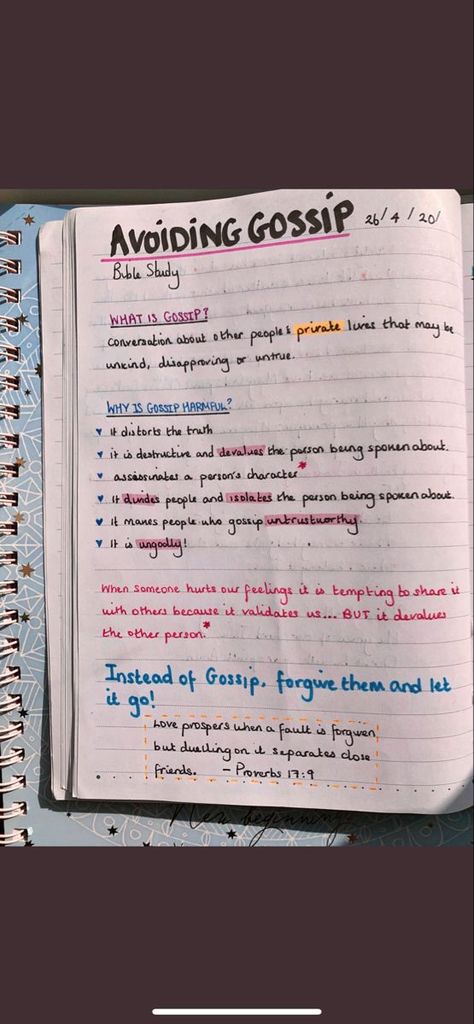 AVOIDING GOSSIP 26/4/20/
Bible Study
WHAT IS GOSSIP?
Conversation about other people's private lives that may be
unkind, disapproving or untrue.
WHY IS GOSSIP HARMFUL?
It distorts the truth
it is destructive and devalues the person being spoken about.
assassinates a person's character*
It divides people and isolates the person being spoken about.
It makes people who gossip untrustworthy.
It is ungodly!
When someone hurts our feelings it is tempting to share it
with others because it validates us... BUT it devalues
the other person.*
Instead of Gossip, forgive them and let
it go!
Love prospers when a fault is forgiven
but dwelling on it separates close
friends. - Proverbs 17:9
New beginnings